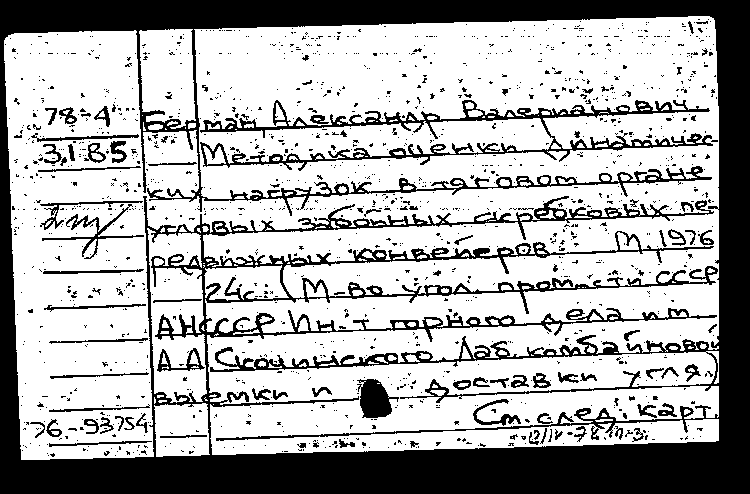 78-4
3185
2 ш
Берман, Александр Валерианович.
Методика оценки динамичес-
ких нагрузок в тяговом органе
угловых забойных скребковых пе-
редвижных конвейеров. М., 1976
24с. (М-во угол. пром-сти СССР
АН СССР Ин-т горного дела им.
А.А. Скочинского. Лаб. комбайновой
выемки и доставки угля)
См. след. карт.
76-93754